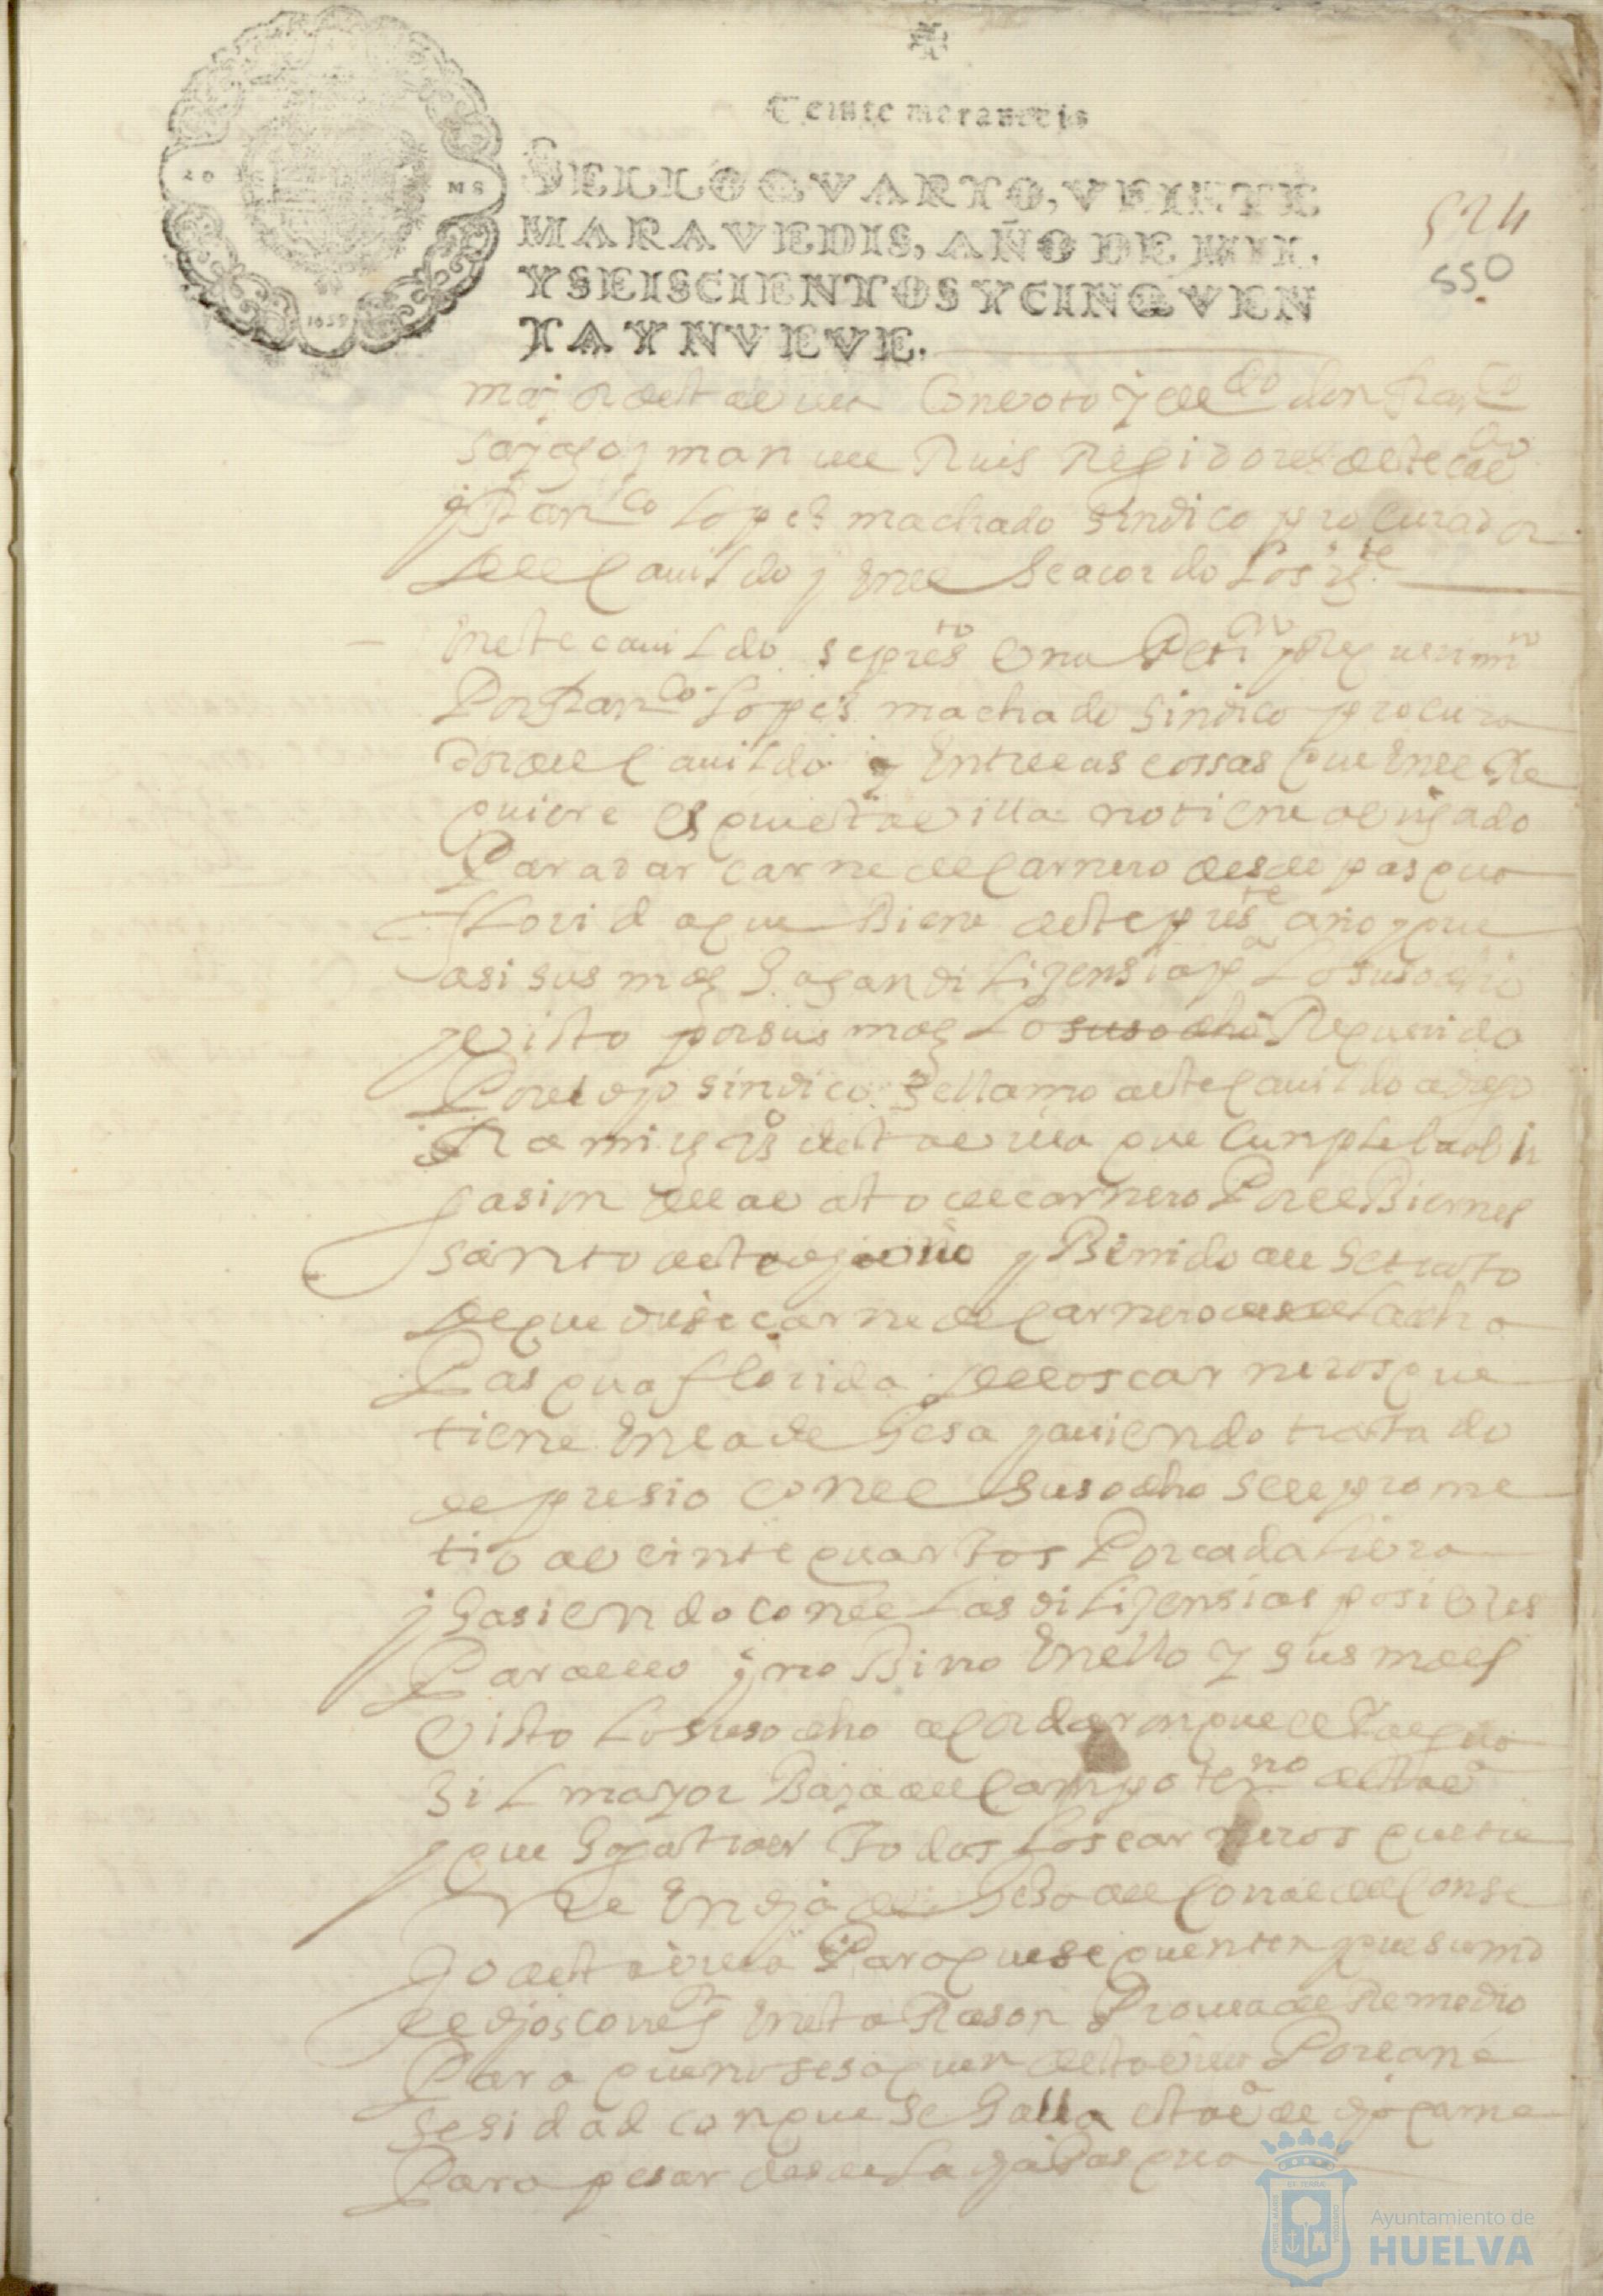 Veinte maravedis
SELLO QVARTO, VEINTE
MARAVEDIS, AÑO DE MIL,
Y SEISCIENTOS Y CINQVEN
TA Y NVEVE.
20 MS
1659
524
550
major desta villa con voto y el do don franco
y manuel Ruis Regidores deste cavdo
y franco Lopes machado sindico procurador
del cavildo y en el se acordo lo sigte
en este cavildo se presto una peton y requerimto
Por franco Lopes machado sindico procura
dor del cavildo y entre las cossas que en el Re
quiere es que esta villa no tiene obligado
Para dar carne de carnero desde pasqua
florida que Biene deste preste año y que
asi sus mds hagan dilijensia pa lo susodicho
y visto por sus mds lo susodho Requerido
Por el djo sindico se llamo a este cavildo a diego
Ramires vo desta villa que cunple la obli
gasion del avasto de carnero Por el Biernes
santo deste djo año y Benido a el se trato
de que diese carne de carnero desde la dcha
Pasqua florida de los carneros que
tiene en la dehesa y aviendo tratado
de presio con el susodho se le prome
tio a veinte quartos Por cada livra
y hasiendo con el las dilijensias posibles
Para ello y no Bino en ello y sus mds
visto lo susodho acordaron que
Gil mayor Baja del campo termno desta va
y que haga traer todos los carneros que tie
ne en dja dehesa del conde del conse
jo desta villa Para que se quenten y que su md
de djos coners en esta Rason Provea de Remedio
Para que no se saquen desta villa Por la ne
sesidad con que se halla esta va de dja carne
Para pesar desde la dja Pasqua
Ayuntamiento de
HUELVA